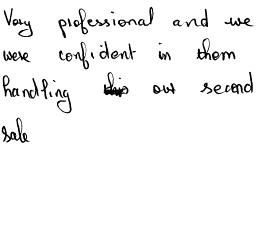 Very professional and we
were confident in them
handling our second
sale